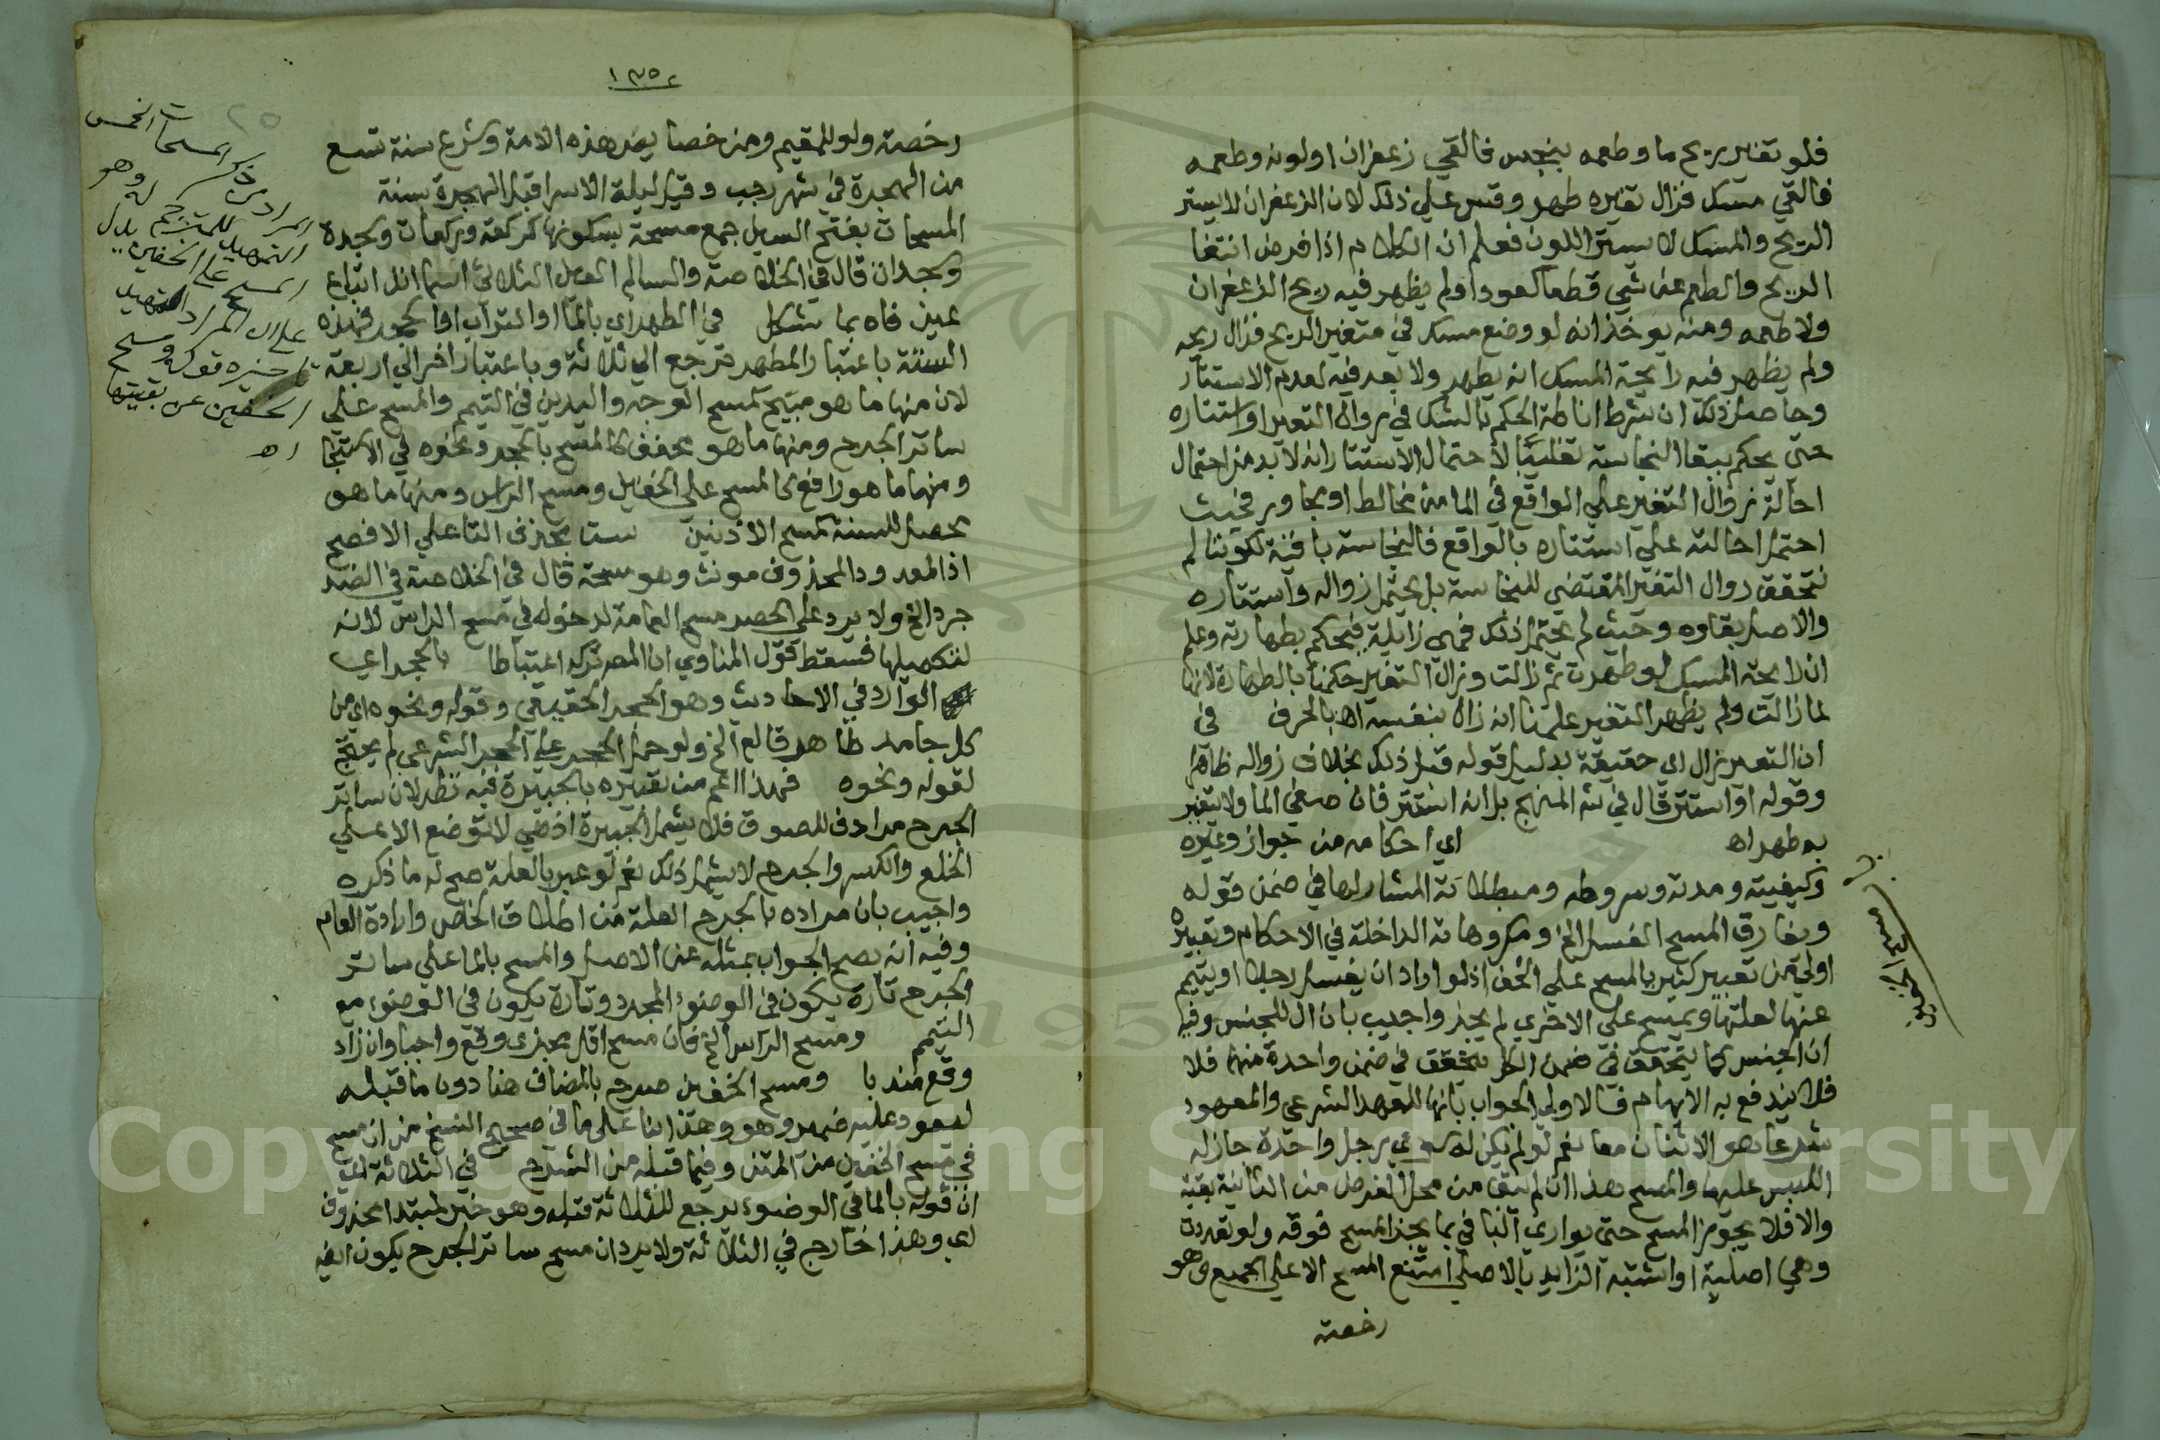 فلو تغير ريح ما وطعمه بنجس فالقي زعفران اولونه وطعمه
فالقي مسك فزال تغيره طهر وقس علي ذلك لان الزعفران لا يستر
الريح والمسك لا يستر اللون فعلم ان الكلام اذا فرض انتفا
الريح والطعم عن شي قطعا كعود او لم يظهر فيه ريح الزعفران
ولا طعمه ومنه يوخذ انه لو وضع مسك في متغير الريح فزال ريحه
ولم يظهر فيه رايحة المسك انه يطهر ولا بعد فيه لعدم الاستتار
وحاصل ذلك ان شرط اناطة الحكم بالشك في زوال التغير او استتاره
حتي يحكم ببقا النجاسة تغليبا لاحتمال الاستتار انه لا بد من احتمال
احالة زوال التغير علي الواقع في الما من مخالط او مجاور فحيث
احتمل احالته علي استتاره بالواقع فالنجاسة باقية لكوننا لم
نتحقق زوال التغير المقتضي للنجاسة بل يحتمل زواله واستتاره
والاصل بقاوه وحيث لم يحتمل ذلك فهي زايلة فيحكم بطهارته وعلم
ان رايحة المسك لو ظهرت ثم زالت وزال التغير حكمنا بالطهارة لانها
لما زالت ولم يظهر التغير علمنا انه زال بنفسه اه بالحرف في
ان التغير زال اي حقيقة بدليل قوله قبل ذلك بخلاف زواله ظاهرا
وقوله او استتر قال في شه المنهج بل انه استتر فان صفي الما ولا تغير
به طهر اه اي احكامه من جواز وغيره
وكيفيته ومدته وشروطه ومبطلاته المشار لها في ضمن قوله
ويفارق المسح الغسل الخ ومكروهاته الداخلة في الاحكام وتعبيره
اولي من تعبير كثير بالمسح علي الخف اذ لو اراد ان يغسل رجلا او يتيمم
عنها لعلتها ويمسح علي الاخري لم يجز واجيب بان ال للجنس وفيه
ان الجنس كما يتحقق في ضمن الكل يتحقق في ضمن واحدة منها فلا
فلا يندفع به الابهام فالاولي الجواب بانها للعهد الشرعي والمعهود
شرعا هو الاثنان معا نعم لو لم يكن له سوي رجل واحدة جاز له
اللبس عليها والمسح هذا ان لم يبق من محل الفرض من الثانية بقية
والا فلا يجوز المسح حتي يواري الباقي بما يجز المسح فوقه ولو تعددت
وهي اصلية او اشتبه الزايد بالاصلي امتنع المسح الا علي الجميع وهو
رخصة
مسح الخفين
١٣٥٢
رخصة ولو للمقيم ومن خصايص هذه الامة وشرع سنة تسع
من الهجرة في شهر رجب وقيل ليلة الاسرا قبل الهجرة بسنة
المسحات بفتح السين جمع مسحة بسكونها كركعة وركعات وسجدة
وسجدات قال في الخلاصة والسالم العين الثلاثي اسما انل اتباع
عين فاه بما شكل في الطهر اي بالما او التراب او الحجر فهذه
الستة باعتبار المطهر ترجع الي ثلاثة وباعتبار اخر الي اربعة
لان منها ما هو مبيح كمسح الوجه واليدين في التيمم والمسح علي
ساتر الجرح ومنها ما هو مخفف كالمسح بالحجر ونحوه في الاستنجا
ومنها ما هو رافع كالمسح علي الخفين ومسح الراس ومنها ما هو
محصل للسنة كمسح الاذنين ست بحذف التا علي الافصح
اذ المعدود المحذوف مونث وهو مسحة قال في الخلاصة في الضد
جرد الخ ولا يرد علي الحصر مسح العمامة لدخوله في مسح الراس لانه
لتكميلها فسقط قول المناوي ان المصر تركه اعتباطا بالحجر اي
الوارد في الاحاديث وهو الحجر الحقيقي وقوله ونحوه اي من
كل جامد طاهر قالع الخ ولو حمل الحجر علي الحجر الشرعي لم يحتج
لقوله ونحوه فهذا اعم من تعبيره بالجبيرة فيه نظر لان ساتر
الجرح مرادف للصوق فلا يشمل الجبيرة اذ هي لا توضع الا علي
الخلع والكسر والجرح لا يشمل ذلك نعم لو عبر بالعلة صح له ما ذكره
واجيب بان مراده بالجرح العلة من اطلاق الخاص وارادة العام
وفيه انه يصح الجواب بمثله عن الاصل والمسح بالما علي ساتر
الجرح تارة يكون في الوضوء المجرد وتارة يكون في الوضوء مع
التيمم ومسح الراس الخ فان مسح اقل مجزي وقع واجبا وان زاد
وقع مندبا ومسح الخفين صرح بالمضاف هنا دون ما قبله
ليعود عليه ضمير وهو وهذا بنا علي ما في صحيح النسخ من ان مسح
في مسح الخفين من المتن وفيما قبله من الشرح في الثلاثة اي
ان قوله بالما في الوضوء يرجع للثلاثة قبله وهو خبر لمبتدا محذوف
اي وهذا خارج في الثلاثة ولا يرد ان مسح ساتر الجرح يكون ايضا
ذكر المسحات الخمس
المراد من
التمهيد للترجمة له وهو
المسح علي الخفين بدليل
علي ان المراد التمهيد
تاخيره قوله ومسح
الخفين عن بقيتها
اه
Copyright © King Saud University
1957